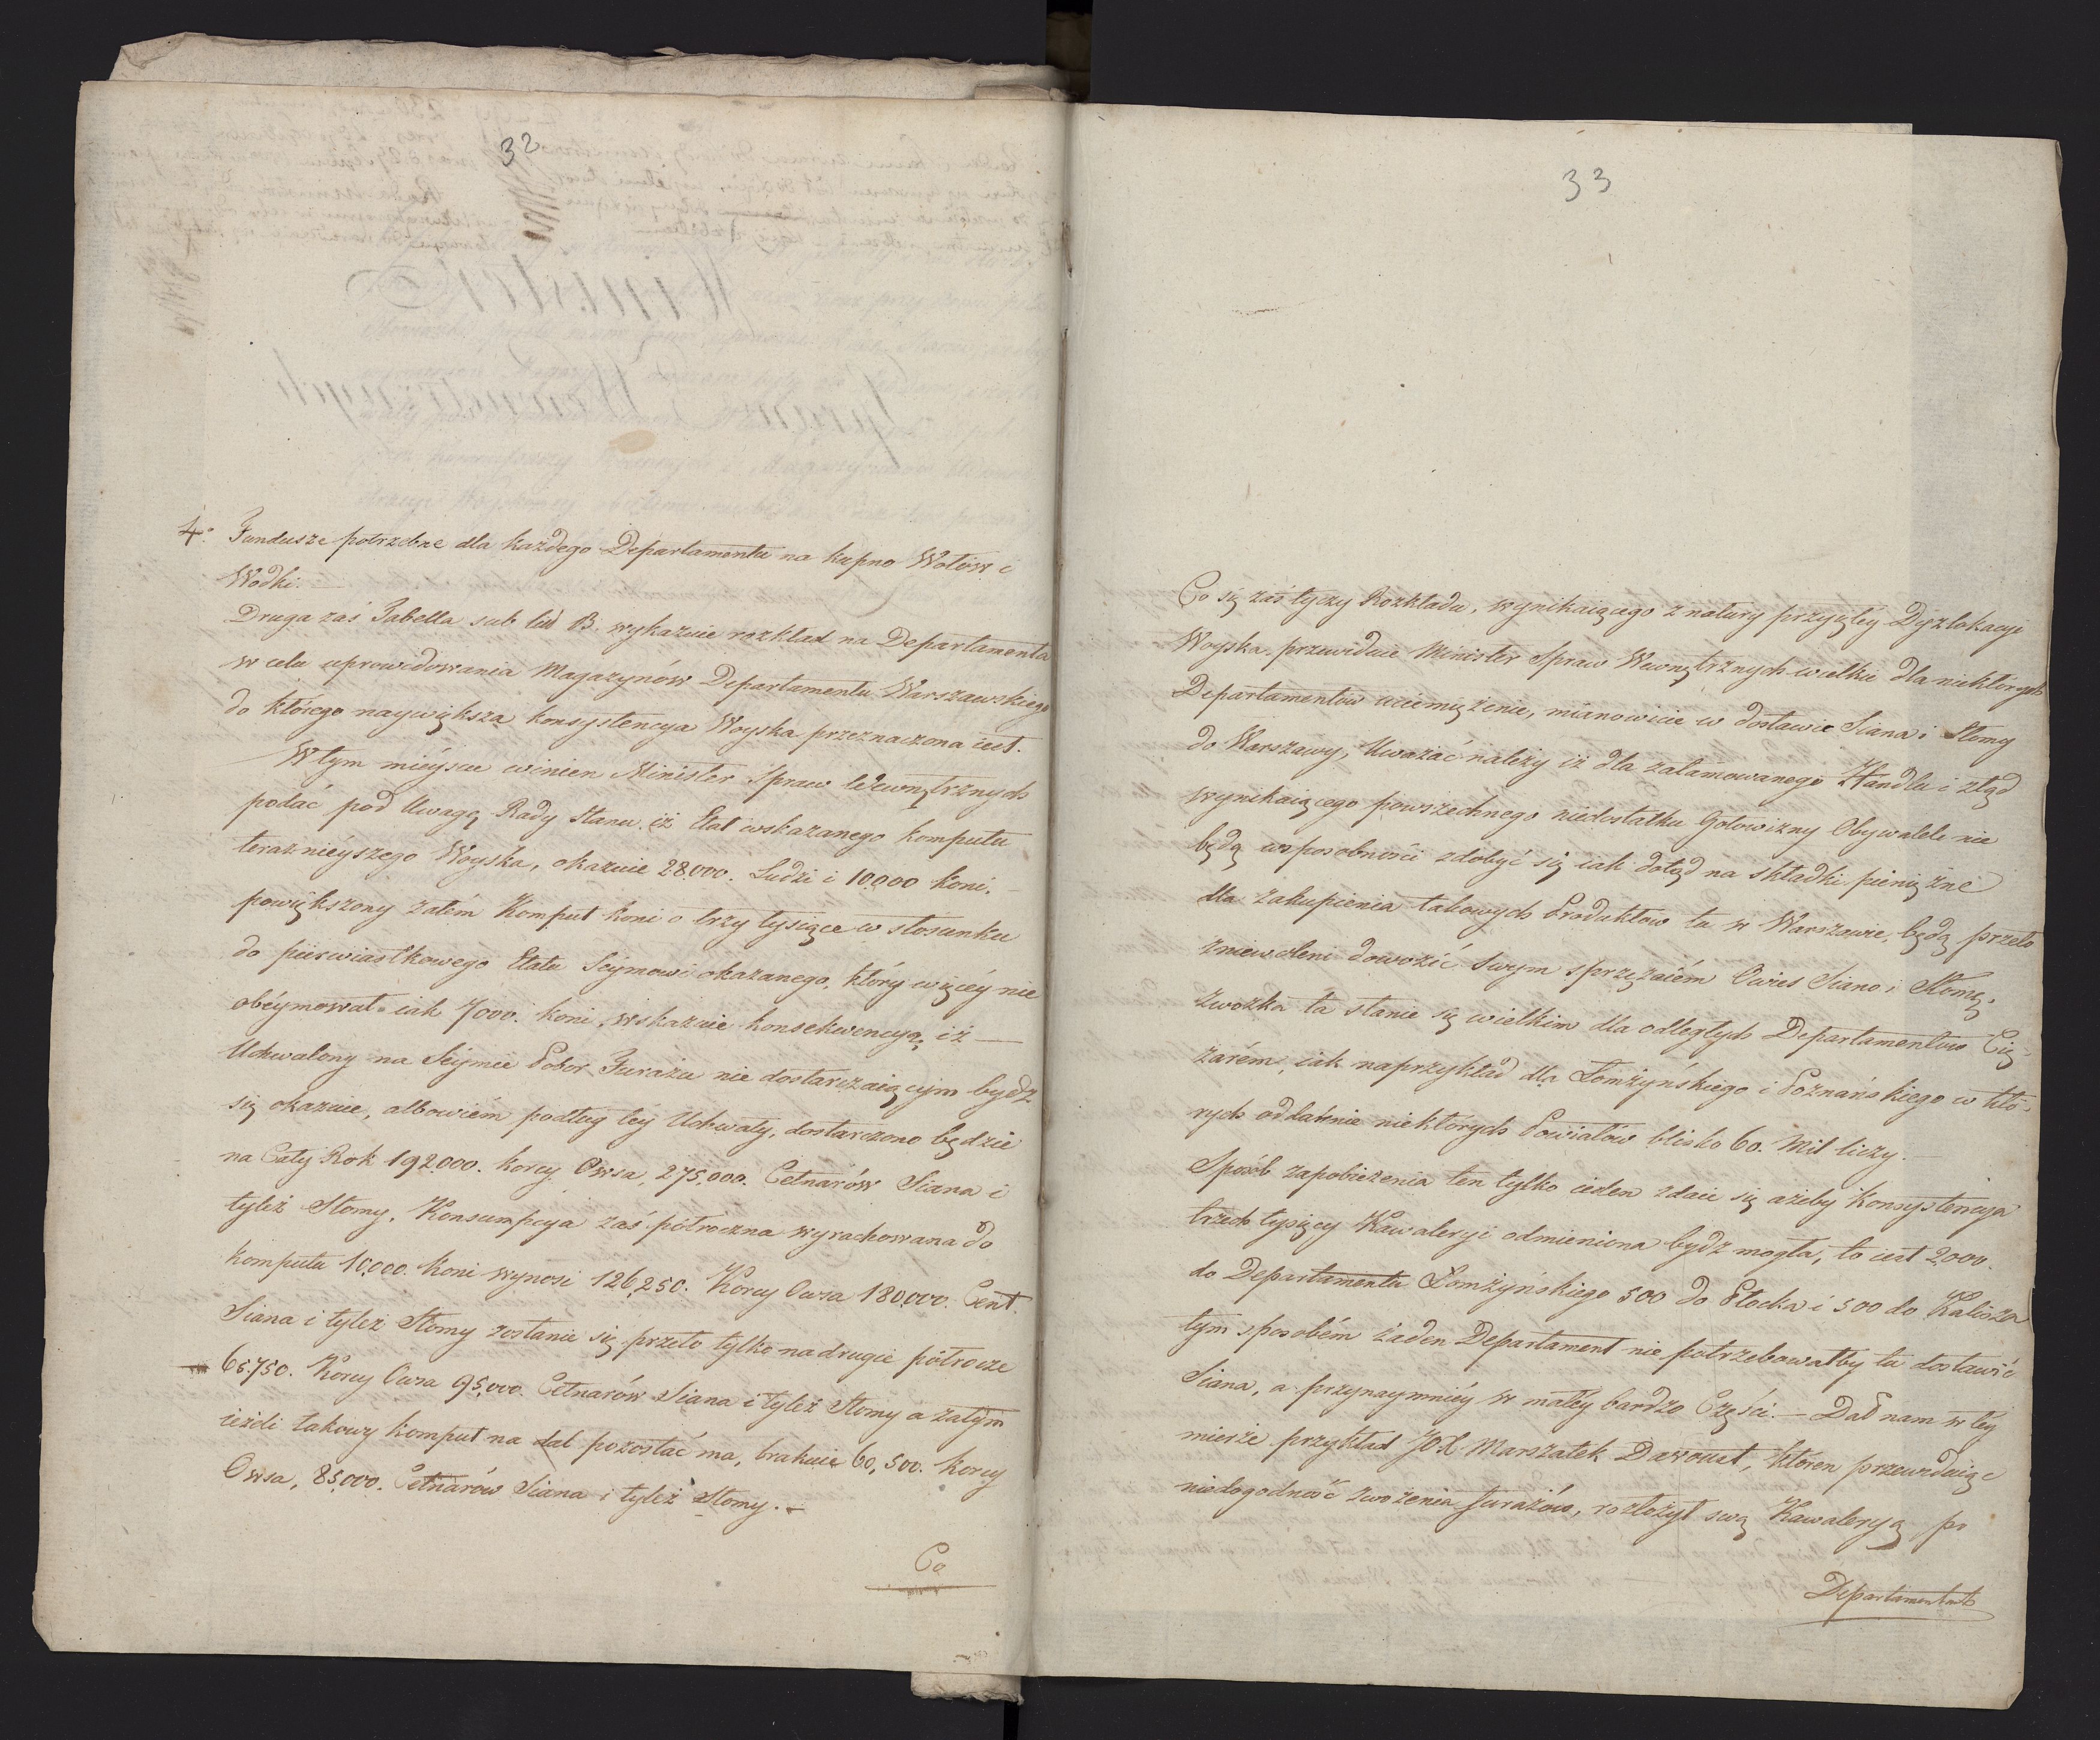 32
4° Fundusze potrzebne dla każdego Departamentu na kupno Wołów i
Wodki. —
Druga zaś Tabella sub lit B. wykazuie rozkład na Departamenta
w celu uprowidowania Magazynów Departamentu Warszawskiego
do którego naywiększa konsystencya Woyska przeznaczona iest.
W tym mieyscu winien Minister Spraw Wewnętrznych
podać pod Uwagę Rady Stanu, iż Etat wskazanego komputu
teraznieyszego Woyska, okazuie 28.000. Ludzi i 10.000 koni. —
powiększony zatém Komput koni o trzy tysiące w stosunku
do pierwiastkowego Etatu Seymowi okazanego, który więcéy nie
obéymował iak 7000. koni, wskazuie konsekwencyą, iż —
Uchwalony na Seymie Pobor Furażu nie dostarczaiącym bydz
się okazuie, albowiém podług téy Uchwały, dostarczono będzie
na Cały Rok 192000. korcy Owsa, 275,000. Cetnarów Siana i
tyleż Słomy, Konsumpcya zaś półroczna wyrachowana do
komputu 10,000. koni wynosi 126,250. Korcy Owsa 180,000. Cent.
Siana i tyleż Słomy zostanie się przeto tylko na drugie półrocze
65.750. Korcy Owsa 95,000. Cetnarów Siana i tyleż Słomy a zatym
ieżeli takowy komput na dal pozostać ma, brakuie 60,500. korcy
Owsa, 85,000. Cetnarów Siana i tyleż Słomy. —
Co
33
Co się zaś tyczy Rozkładu, wynikaiącego z natury przyiętéy Dyzlokacyi
Woyska, przewiduie Minister Spraw Wewnętrznych wielkie dla niektórych
Departamentow uciemiężenie, mianowicie w dostawie Siana i Słomy
do Warszawy, Uważać należy iż dla zatamowanego Handlu i ztąd
wynikaiącego powszechnego niedostatku Gotowizny Obywatele nie
będą w sposobności zdobyć się iak dotąd na składki pieniężne
dla zakupienia takowych Produktow tu w Warszawie, będą przeto
zniewoleni dowozić swym sprzężaiém Owies Siano i Słomę,
zwozka ta stanie się wielkim dla odległych Departamentow Cię-
żarém, iak naprzykład dla Łomżyńskiego i Poznańskiego w któ-
rych oddalenie niektórych Powiatów blisko 60. Mil liczy. —
Sposób zapobieżenia ten tylko ieden zdaie się ażeby konsystencya
trzech tysięcy Kawaleryi odmieniona bydz mogła, to iest 2,000.
do Departamentu Łomżyńskiego 500 do Płocka i 500 do Kalisza
tym sposobém żaden Departament nie potrzebowałby tu dostawić
Siana, a przynaymniéy w małéy bardzo Części. — Dał nam w téy
mierze przykład JO.X. Marszałek Davoust, któren przewiduiąc
niedogodność zwożenia furażów, rozłożył swą Kawaleryą po
Departamentach